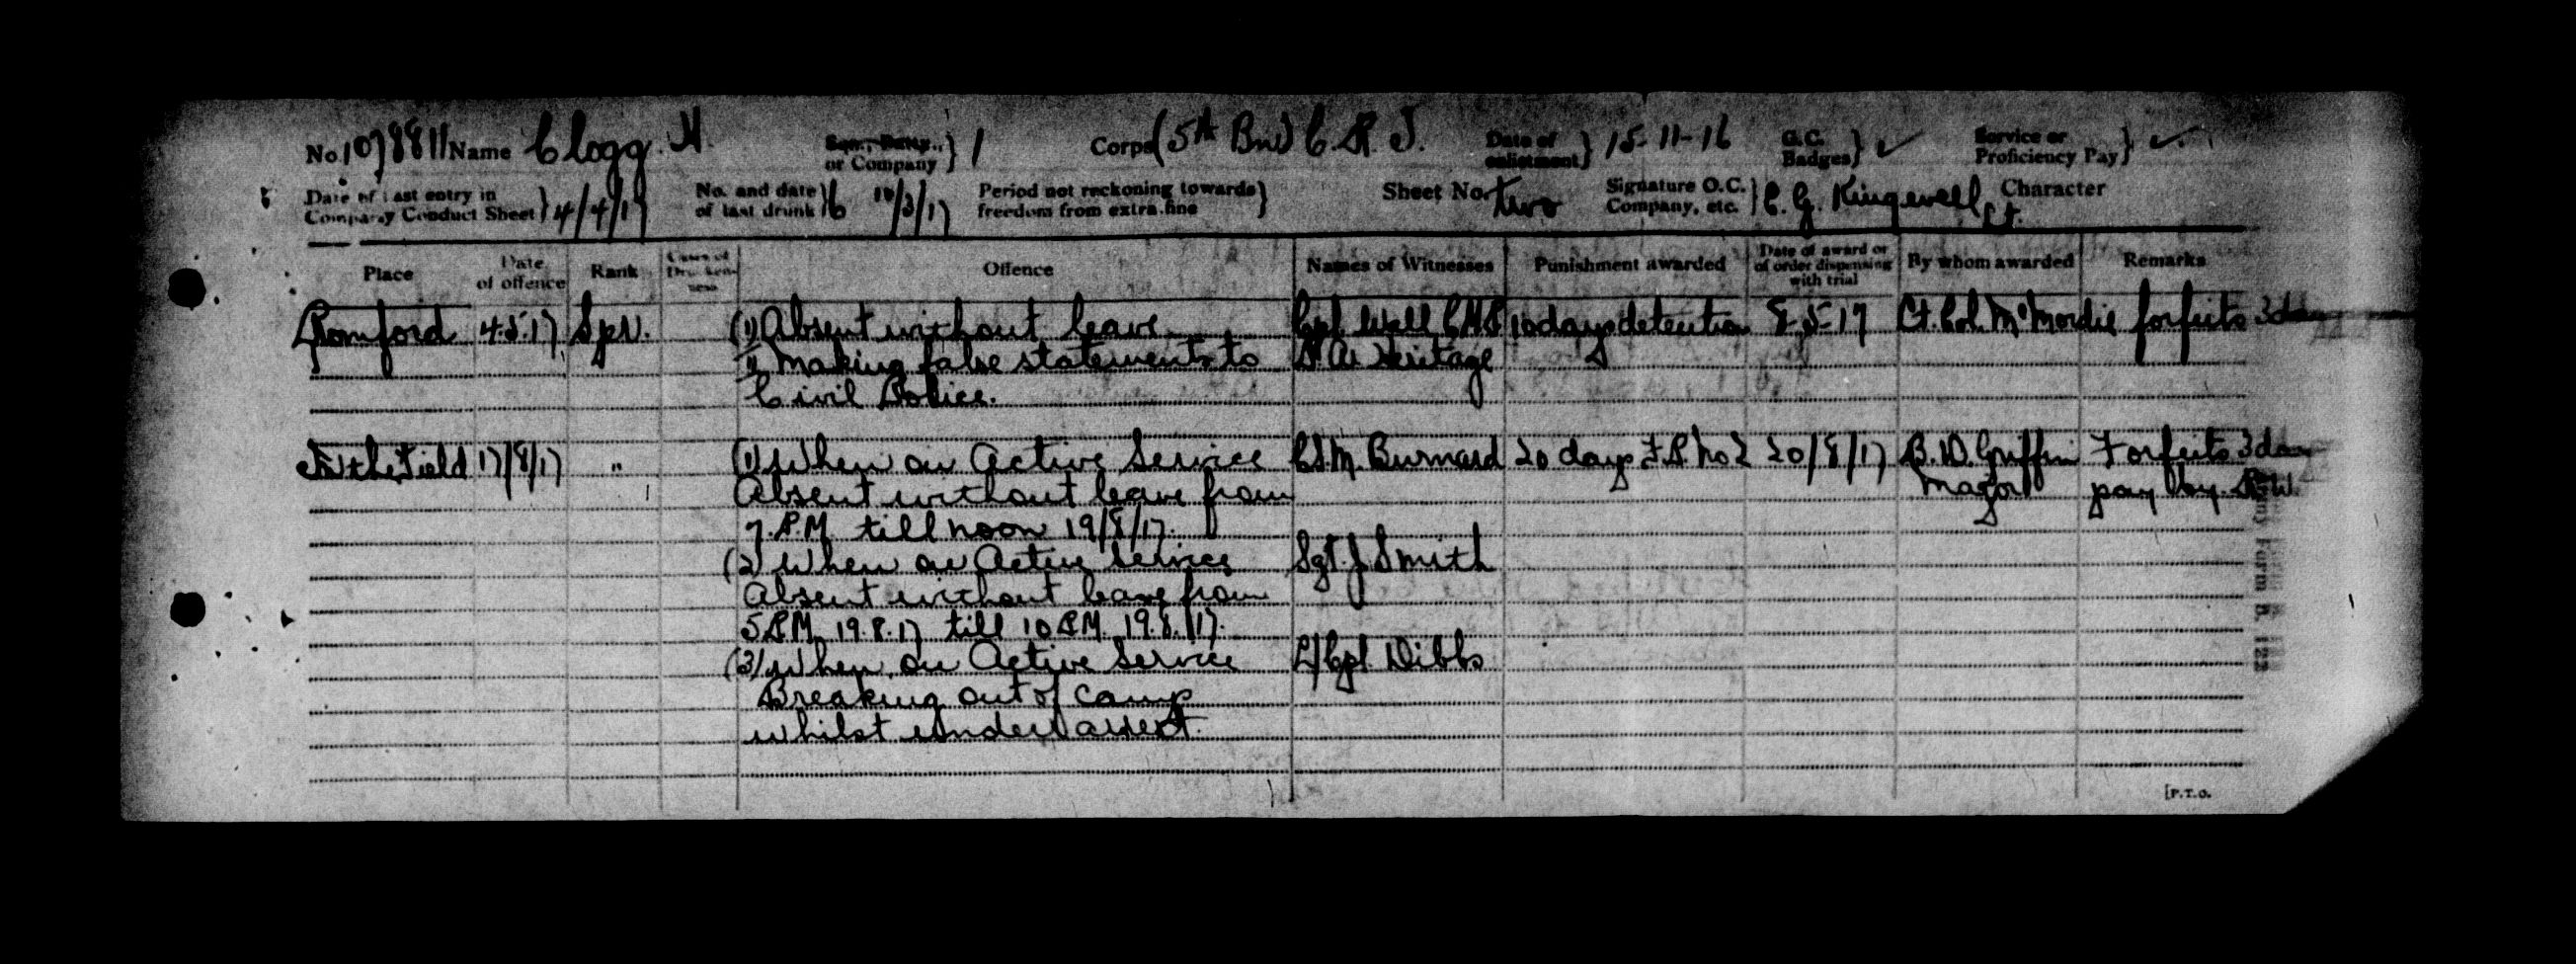 No. 1078811 Name Clogg. H. Sqn., Batty., or Company } 1 Corps (5th Bn) C.R.T. Date of enlistment } 15-11-16 G.C. Badges } ✓ Service or Proficiency Pay } ✓
Date of last entry in Company Conduct Sheet } 4/4/17 No. and date of last drunk } 6 10/3/17 Period not reckoning towards freedom from extra fine } Sheet No. two Signature O.C. Company, etc. } C. G. Kingswell Lt. Character
Place Date of offence Rank Cases of Drunkenness Offence Names of Witnesses Punishment awarded Date of award or of order dispensing with trial By whom awarded Remarks
Romford 4.5.17 Spr. (1) Absent without leave Cpl Wall CMP 10 days detention 8-5-17 Lt. Col. McMordie forfeits 3 day
Making false statements to Heritage
Civil Police.
In the Field 17/8/17 " (1) When on Active Service CSM. Burnard 20 days F.P. No 2 20/8/17 B.D. Griffin Forfeits 3 day
Absent without leave from Major pay by R.W.
7.P.M till noon 19/8/17.
(2) When on Active Service Sgt. J Smith
Absent without leave from
5 P.M. 19.8.17 till 10 P.M 19.8.17.
(3) When on Active Service L/Cpl Dibbs
Breaking out of camp
whilst under arrest.
Army Form B. 122
[P.T.O.